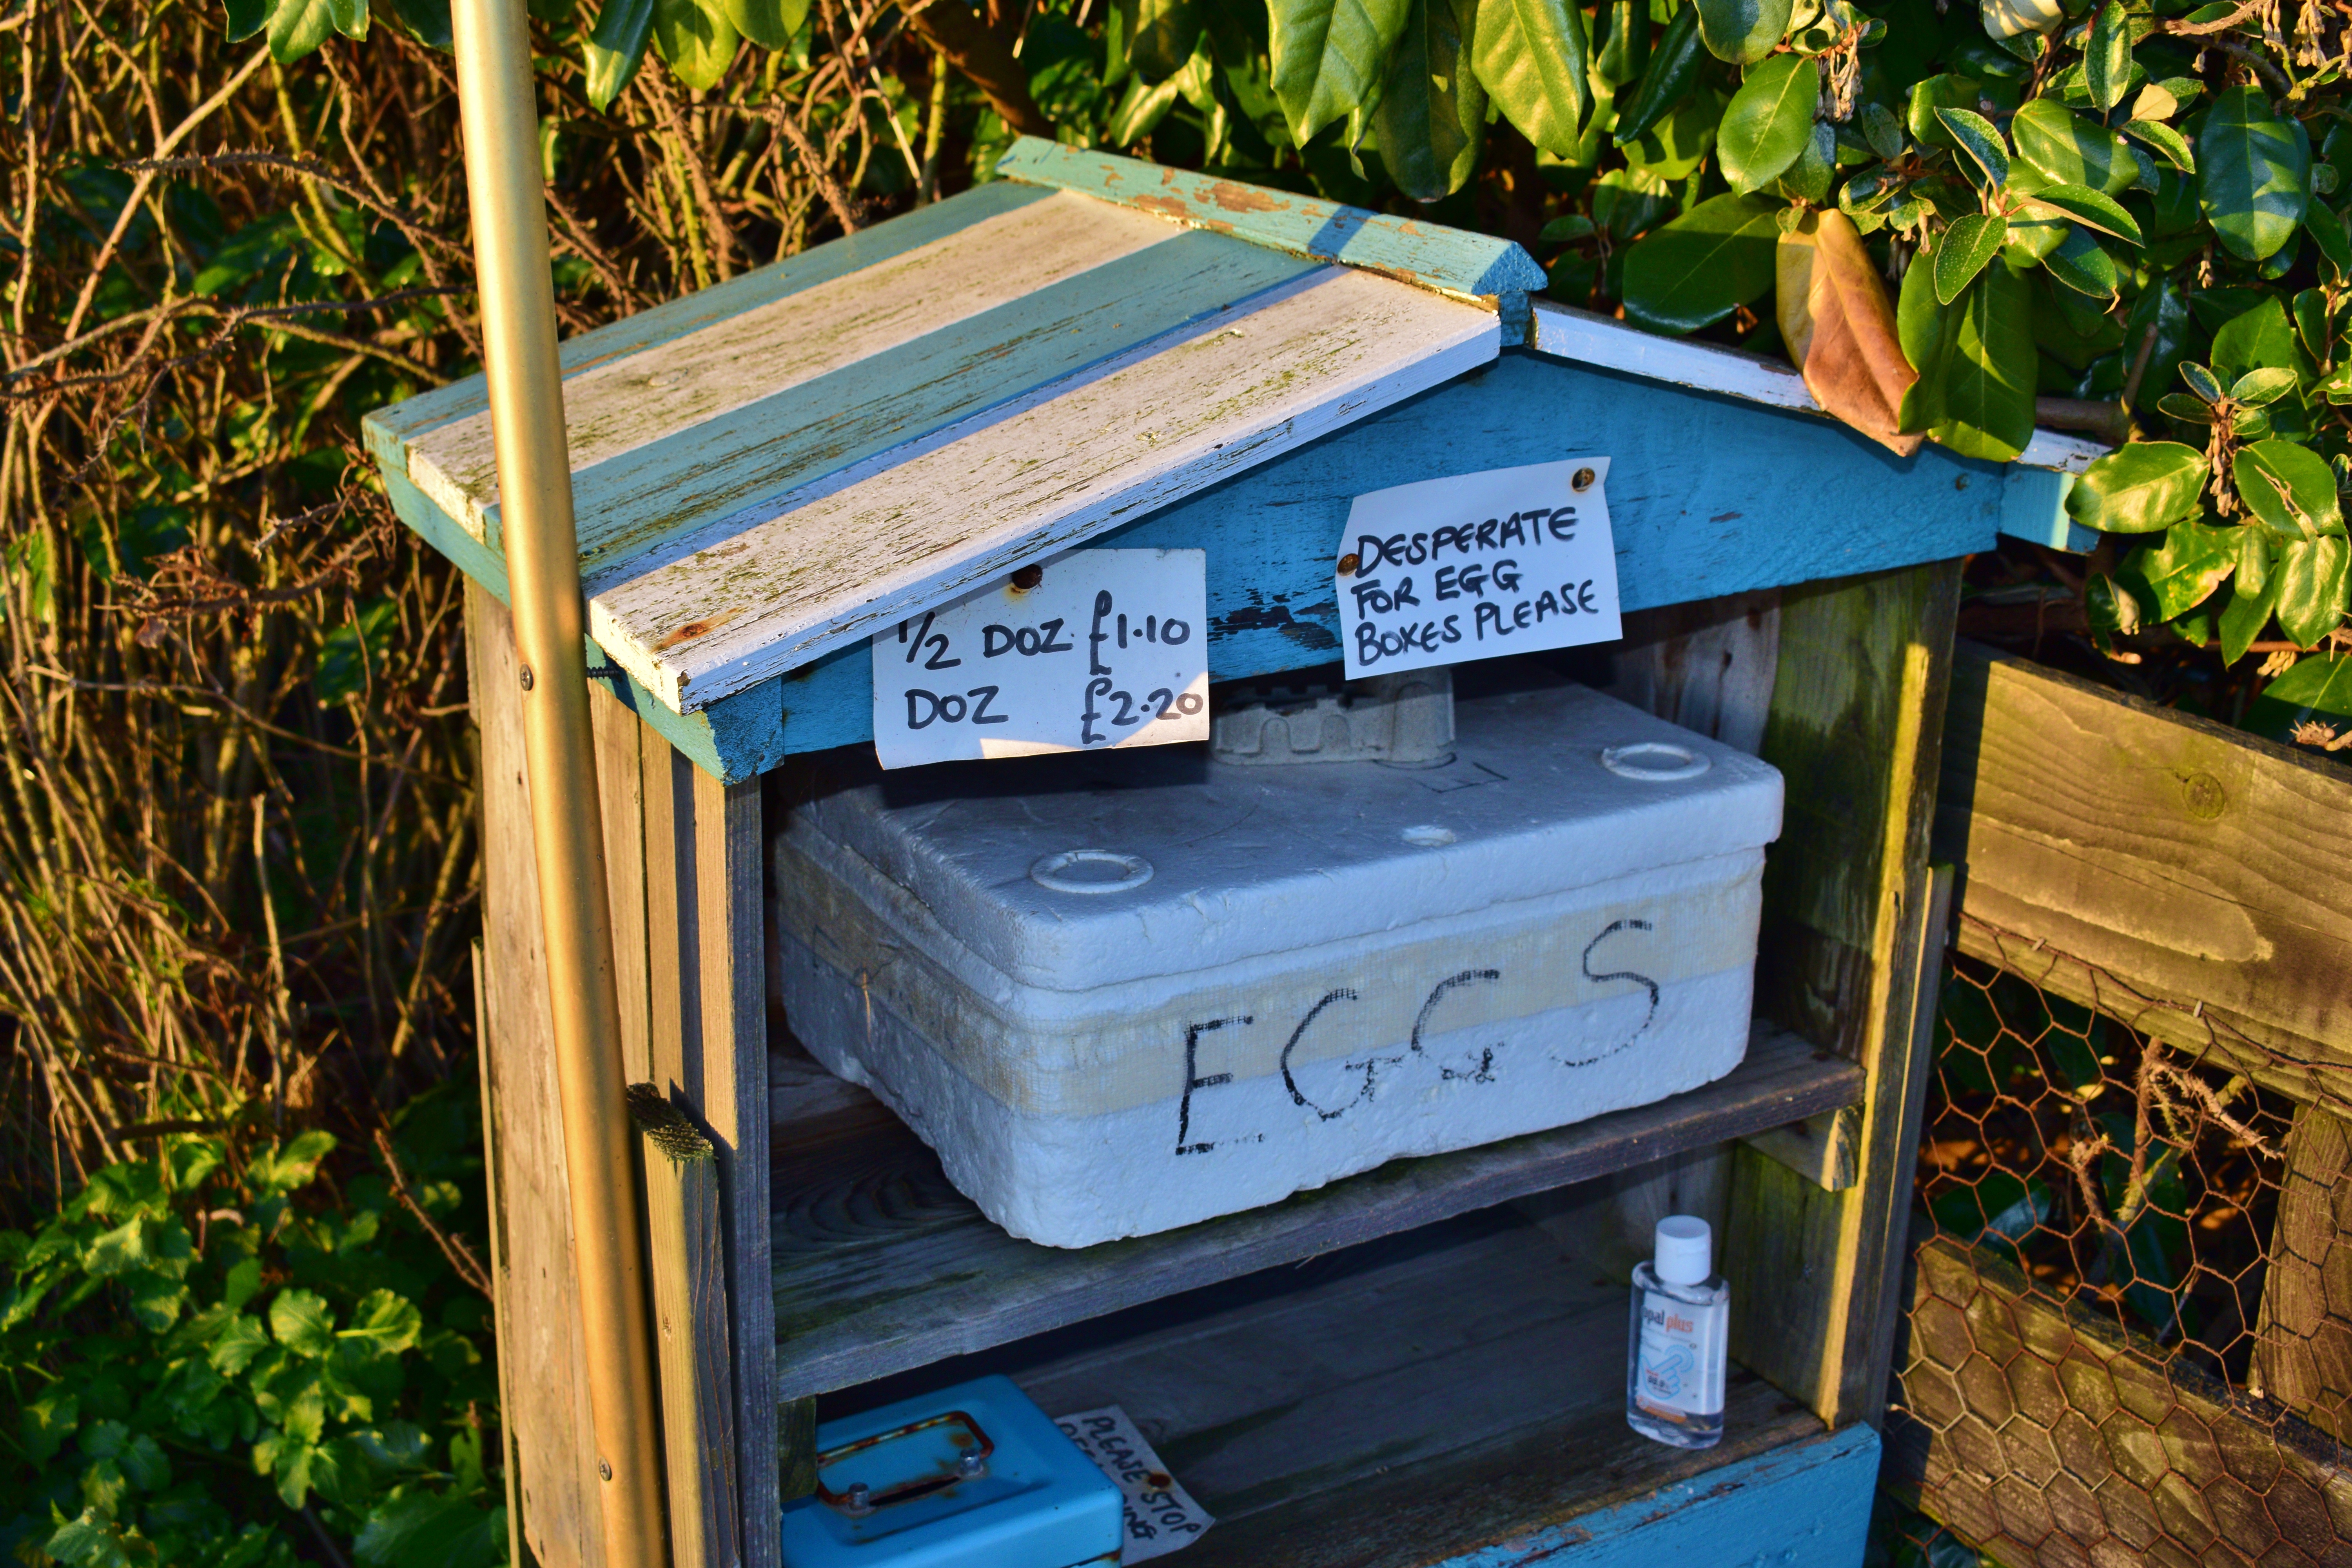 1/2 DOZ £1.10
DOZ £2.20
DESPERATE
FOR EGG
BOXES PLEASE
EGGS
opal plus
PLEASE STOP